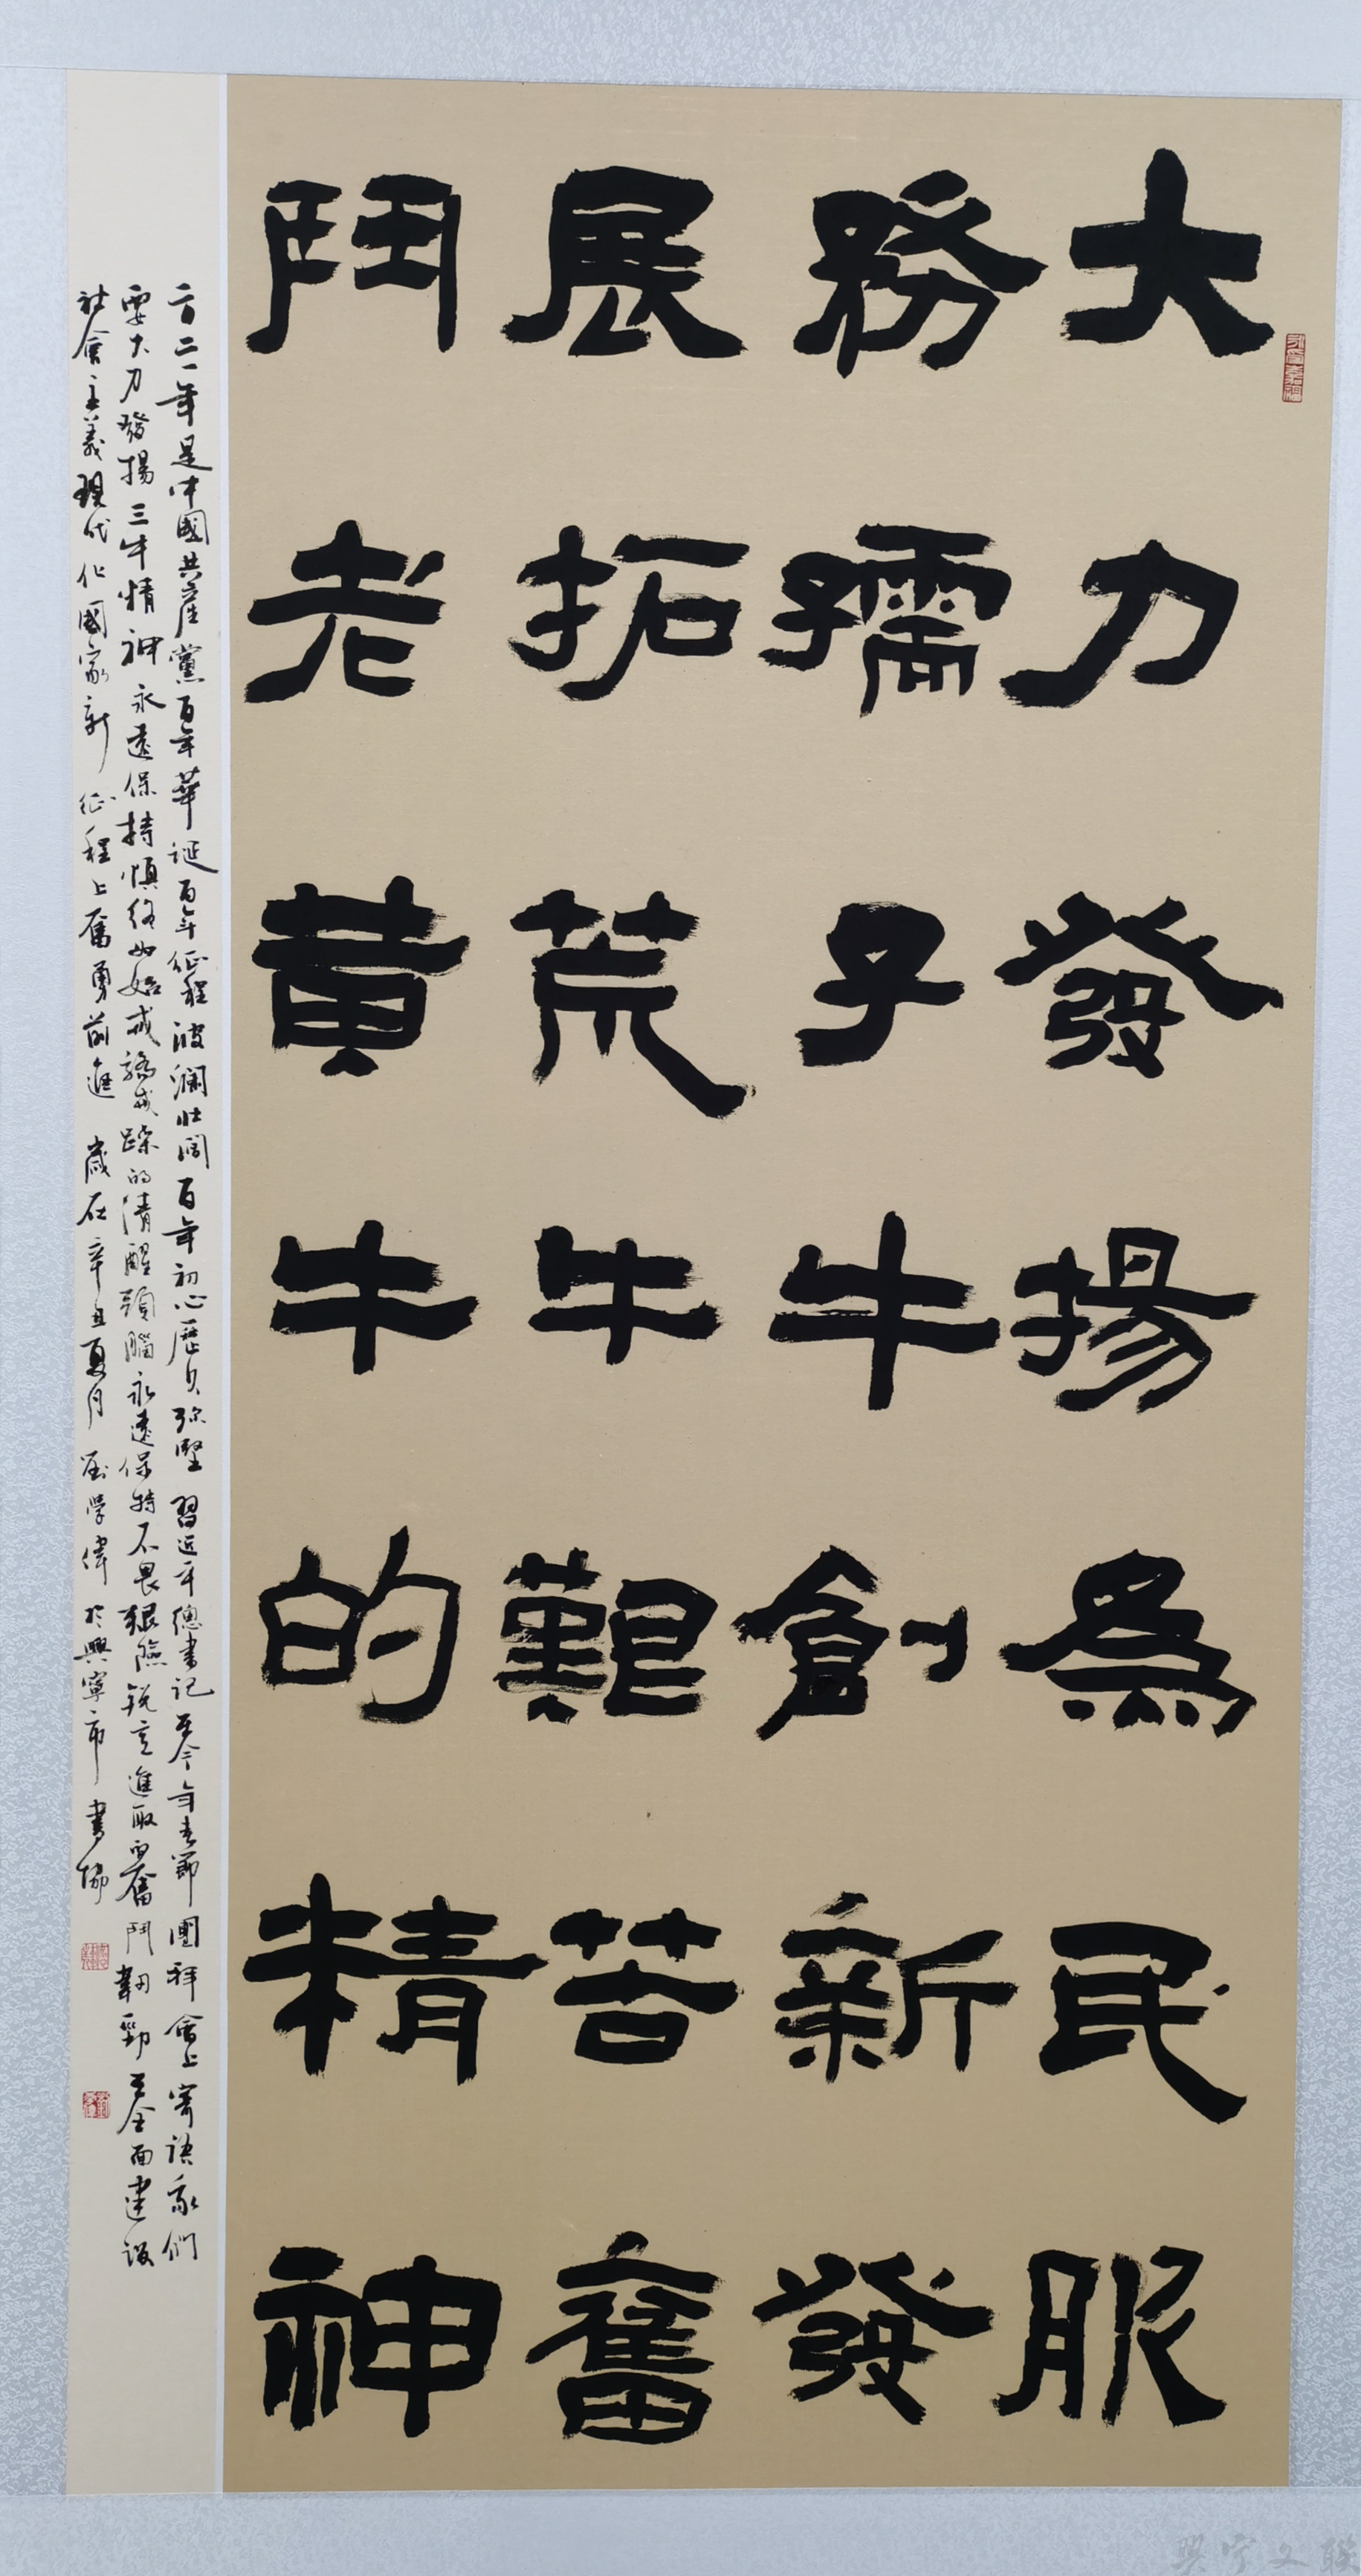 大力發揚爲民服
務孺子牛創新發
展拓荒牛艱苦奮
鬥老黃牛的精神
二〇二一年是中國共產黨百年華誕百年征程波瀾壯闊百年初心歷久弥堅習近平總書記在今年春節團拜會上寄語我們
要大力發揚三牛精神永遠保持慎終如始戒驕戒躁的清醒頭腦永遠保持不畏艱險銳意進取的奮鬥韌勁在全面建設
社會主義現代化國家新征程上奮勇前進 歲在辛丑夏月 学偉於興寧市書協
興宁文聯